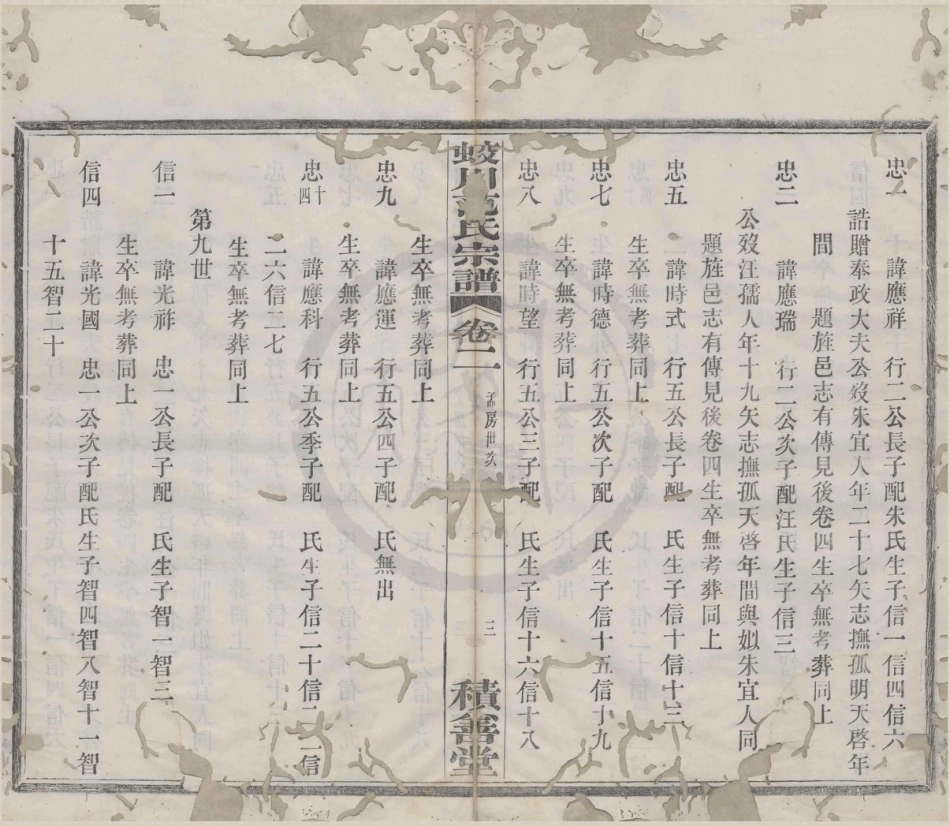 忠一 諱應祥 行二公長子配朱氏生子信一信四信六
誥贈奉政大夫公歿朱宜人年二十七矢志撫孤明天啓年
間 題旌邑志有傳見後卷四生卒無考葬同上
忠二 諱應瑞 行二公次子配汪氏生子信三
公歿汪孺人年十九矢志撫孤天啓年間與姒朱宜人同
題旌邑志有傳見後卷四生卒無考葬同上
忠五 諱時式 行五公長子配 氏生子信十信十三
生卒無考葬同上
忠七 諱時德 行五公次子配 氏生子信十五信十九
生卒無考葬同上
忠八 諱時望 行五公三子配 氏生子信十六信十八
蛟川范氏宗譜 卷二 孟房世次 三 積善堂
生卒無考葬同上
忠九 諱應運 行五公四子配 氏無出
生卒無考葬同上
忠十四 諱應科 行五公季子配 氏生子信二十信二二信
二六信二七
生卒無考葬同上
第九世
信一 諱光祚 忠一公長子配 氏生子智一智三
生卒無考葬同上
信四 諱光國 忠一公次子配氏生子智四智八智十一智
十五智二十